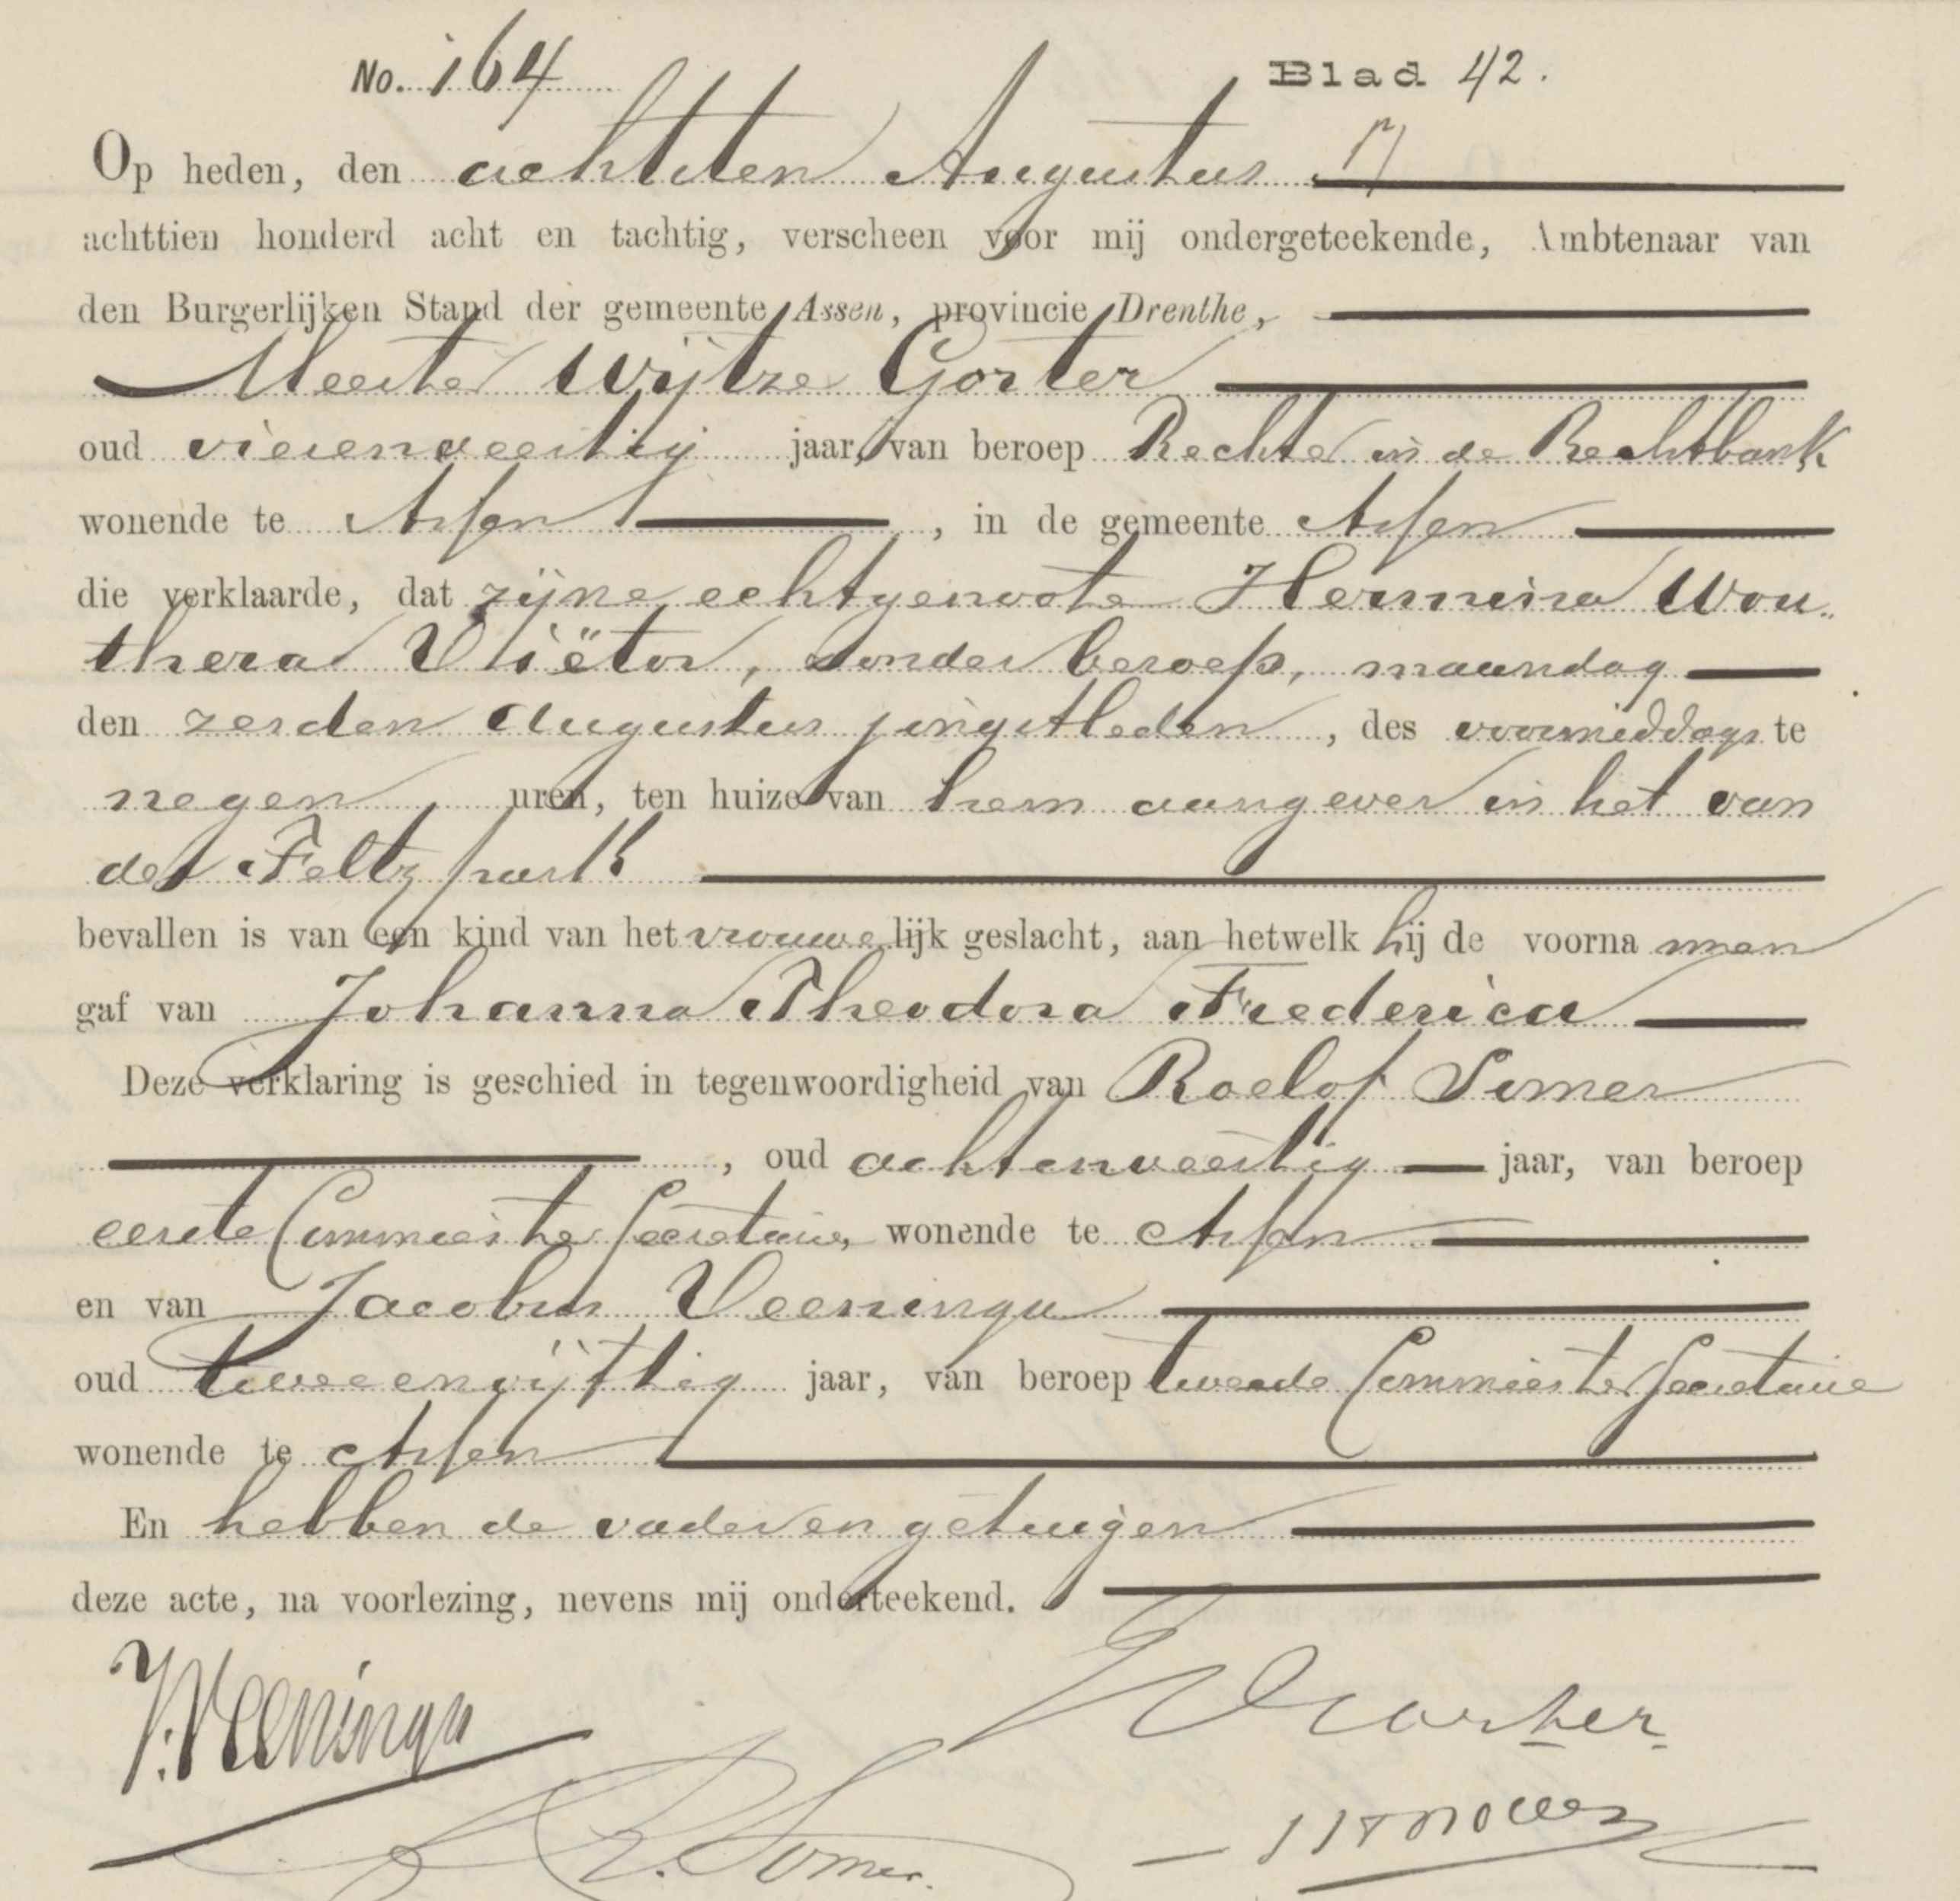 No. 164 Blad 42.
Op heden, den achtsten Augustus
achttien honderd acht en tachtig, verscheen voor mij ondergeteekende, Ambtenaar van
den Burgerlijken Stand der gemeente Assen, provincie Drenthe,
Meester Wijtze Gorter
oud vierenveertig jaar, van beroep Rechter in de Rechtbank
wonende te Assen, in de gemeente Assen
die verklaarde, dat zijne echtgenoote Hermina Wou-
thera Viëtor, zonder beroep, maandag
den zesden Augustus jongstleden, des voormiddags te
negen uren, ten huize van hem aangever in het van
der Feltz park
bevallen is van een kind van het vrouwelijk geslacht, aan hetwelk hij de voorna men
gaf van Johanna Theodora Frederica
Deze verklaring is geschied in tegenwoordigheid van Roelof Somer
, oud achtenveertig jaar, van beroep
eerste Commies ter Secretarie, wonende te Assen
en van Jacobus Veeninga
oud tweeenvijftig jaar, van beroep tweede Commies ter Secretarie
wonende te Assen
En hebben de vader en getuigen
deze acte, na voorlezing, nevens mij onderteekend.
J. Veeninga WGorter
R. Somer.